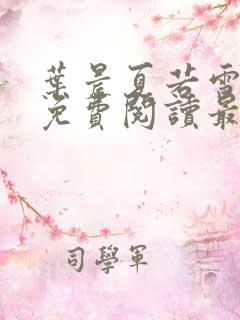 葉晨夏若雪
免費閱讀最
司學軍